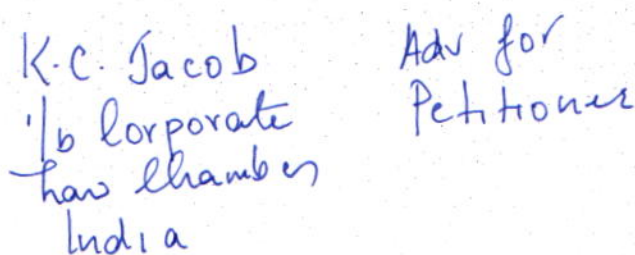 K.C. Jacob
i/b Corporate
Law Chambers
India
Adv for
Petitioner